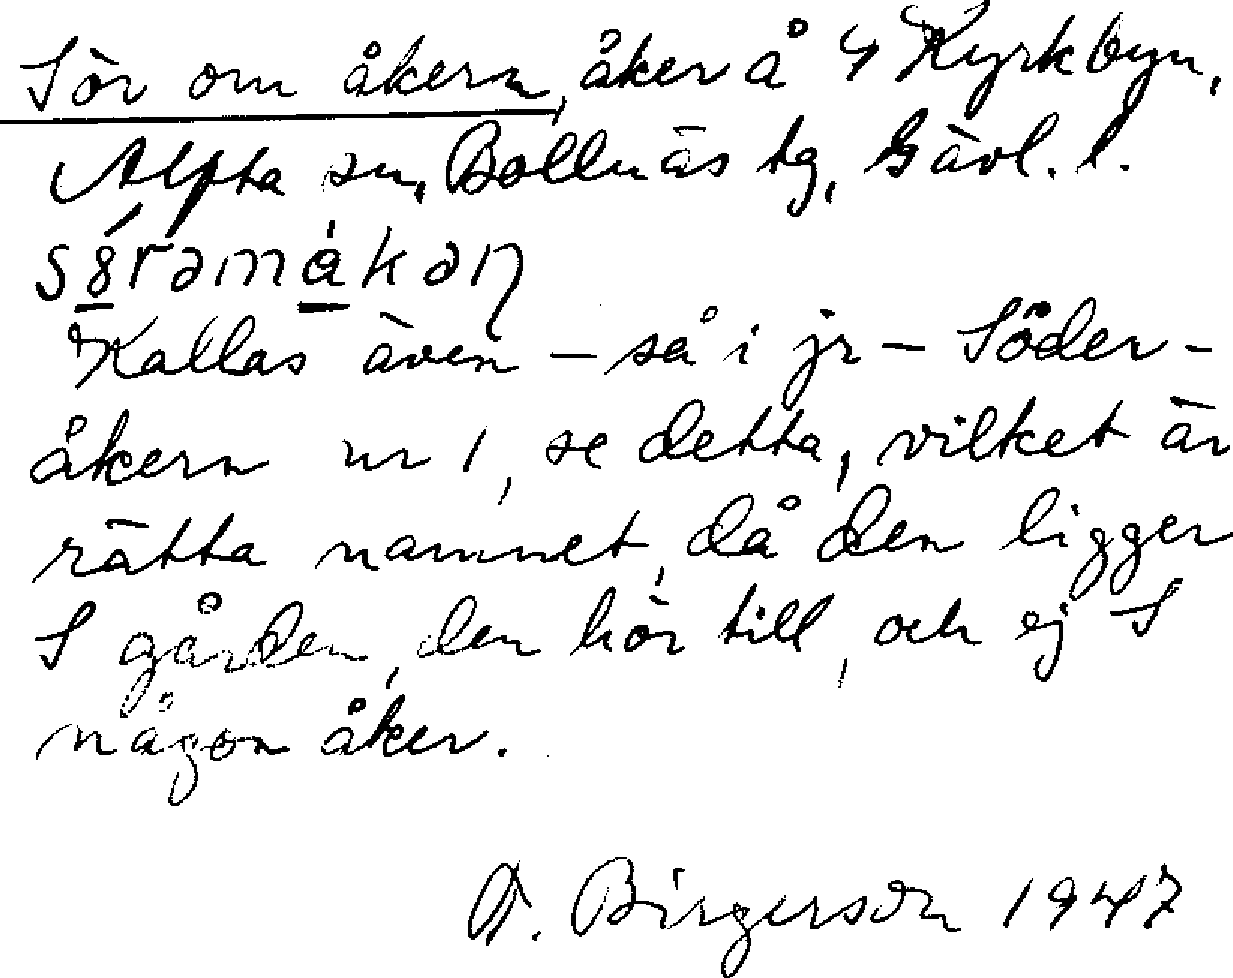 Sör om åkern, åker å 4 Kyrkbyn,
Alfta sn, Bollnäs tg, Gävl. l.
Kallas även – så i jr – Söder-
åkern nr 1, se detta, vilket är
rätta namnet, då den ligger
S gården, den hör till, och ej S
någon åker.
Birgerson 1947